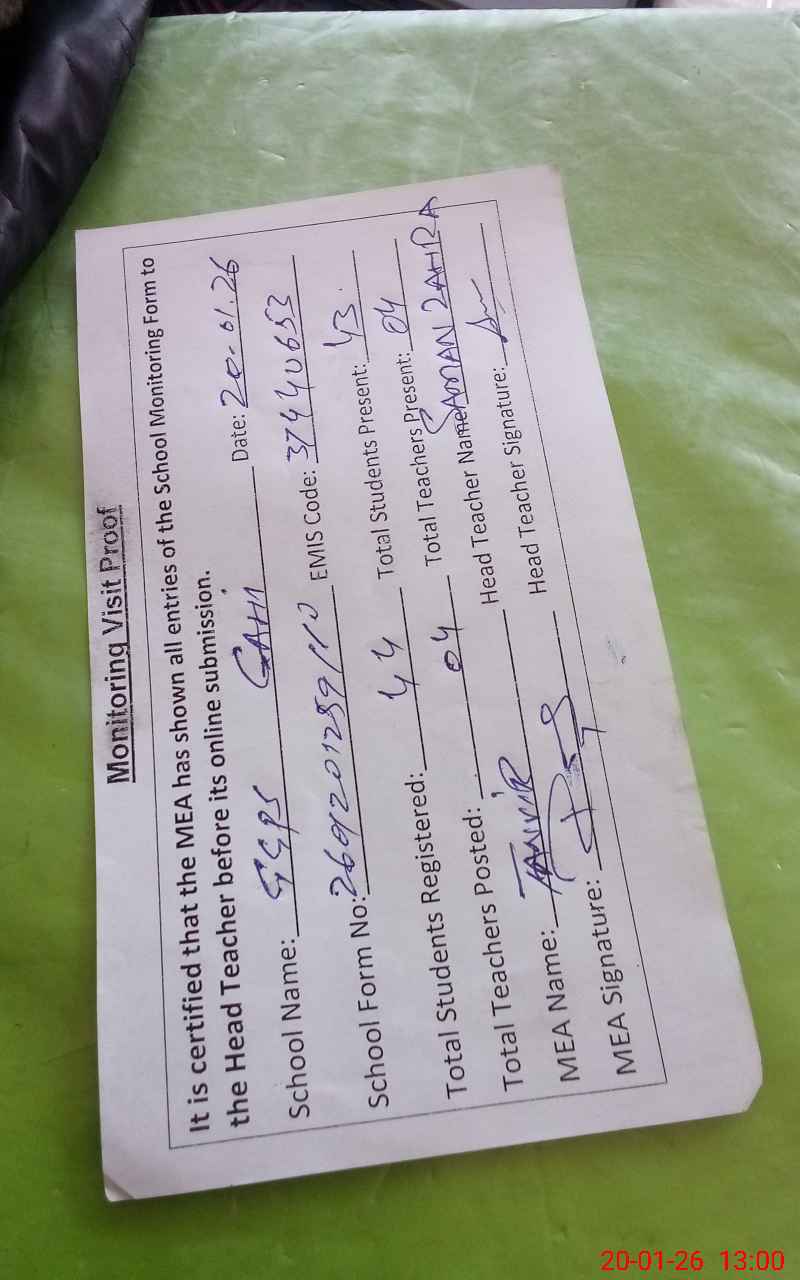 Monitoring Visit Proof
It is certified that the MEA has shown all entries of the School Monitoring Form to
the Head Teacher before its online submission.
School Name: GGPS GAHI Date: 20-01.26
School Form No: EMIS Code: 37440653
Total Students Registered: 44 Total Students Present: 43
Total Teachers Posted: 04 Total Teachers Present: 04
MEA Name: TANVIR Head Teacher Name: SAMAN ZAHRA
MEA Signature: Head Teacher Signature:
20-01-26 13:00